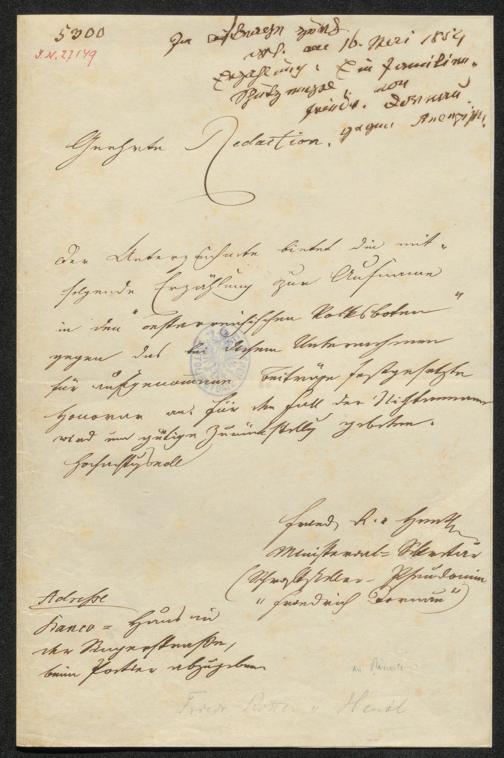 5300
I.N. 27149
am 16. Mai 1854
Erzählung: Ein Familien-
von
Friedr. Dornau
gegen
Geehrte Redaction.
Der Unterzeichnete bietet die mit-
folgende Erzählung zur Aufnahme
in den "oesterreichischen Volksboten"
gegen das bei diesem Unternehmen
für aufgenommene Beiträge festgesetzte
Honorar an. Für den Fall der Nichtannahme
wird um gütige Zurückstellung gebeten.
Hochachtungsvoll
Fried. R. v. Hentl
Ministerial-Sekretär
(Schriftsteller-Pseudonim
"Friedrich Dornau")
Adresse
Franco = Haus in
der Singerstrasse,
beim Portier abzugeben
Friedr. Ritter v Hentl